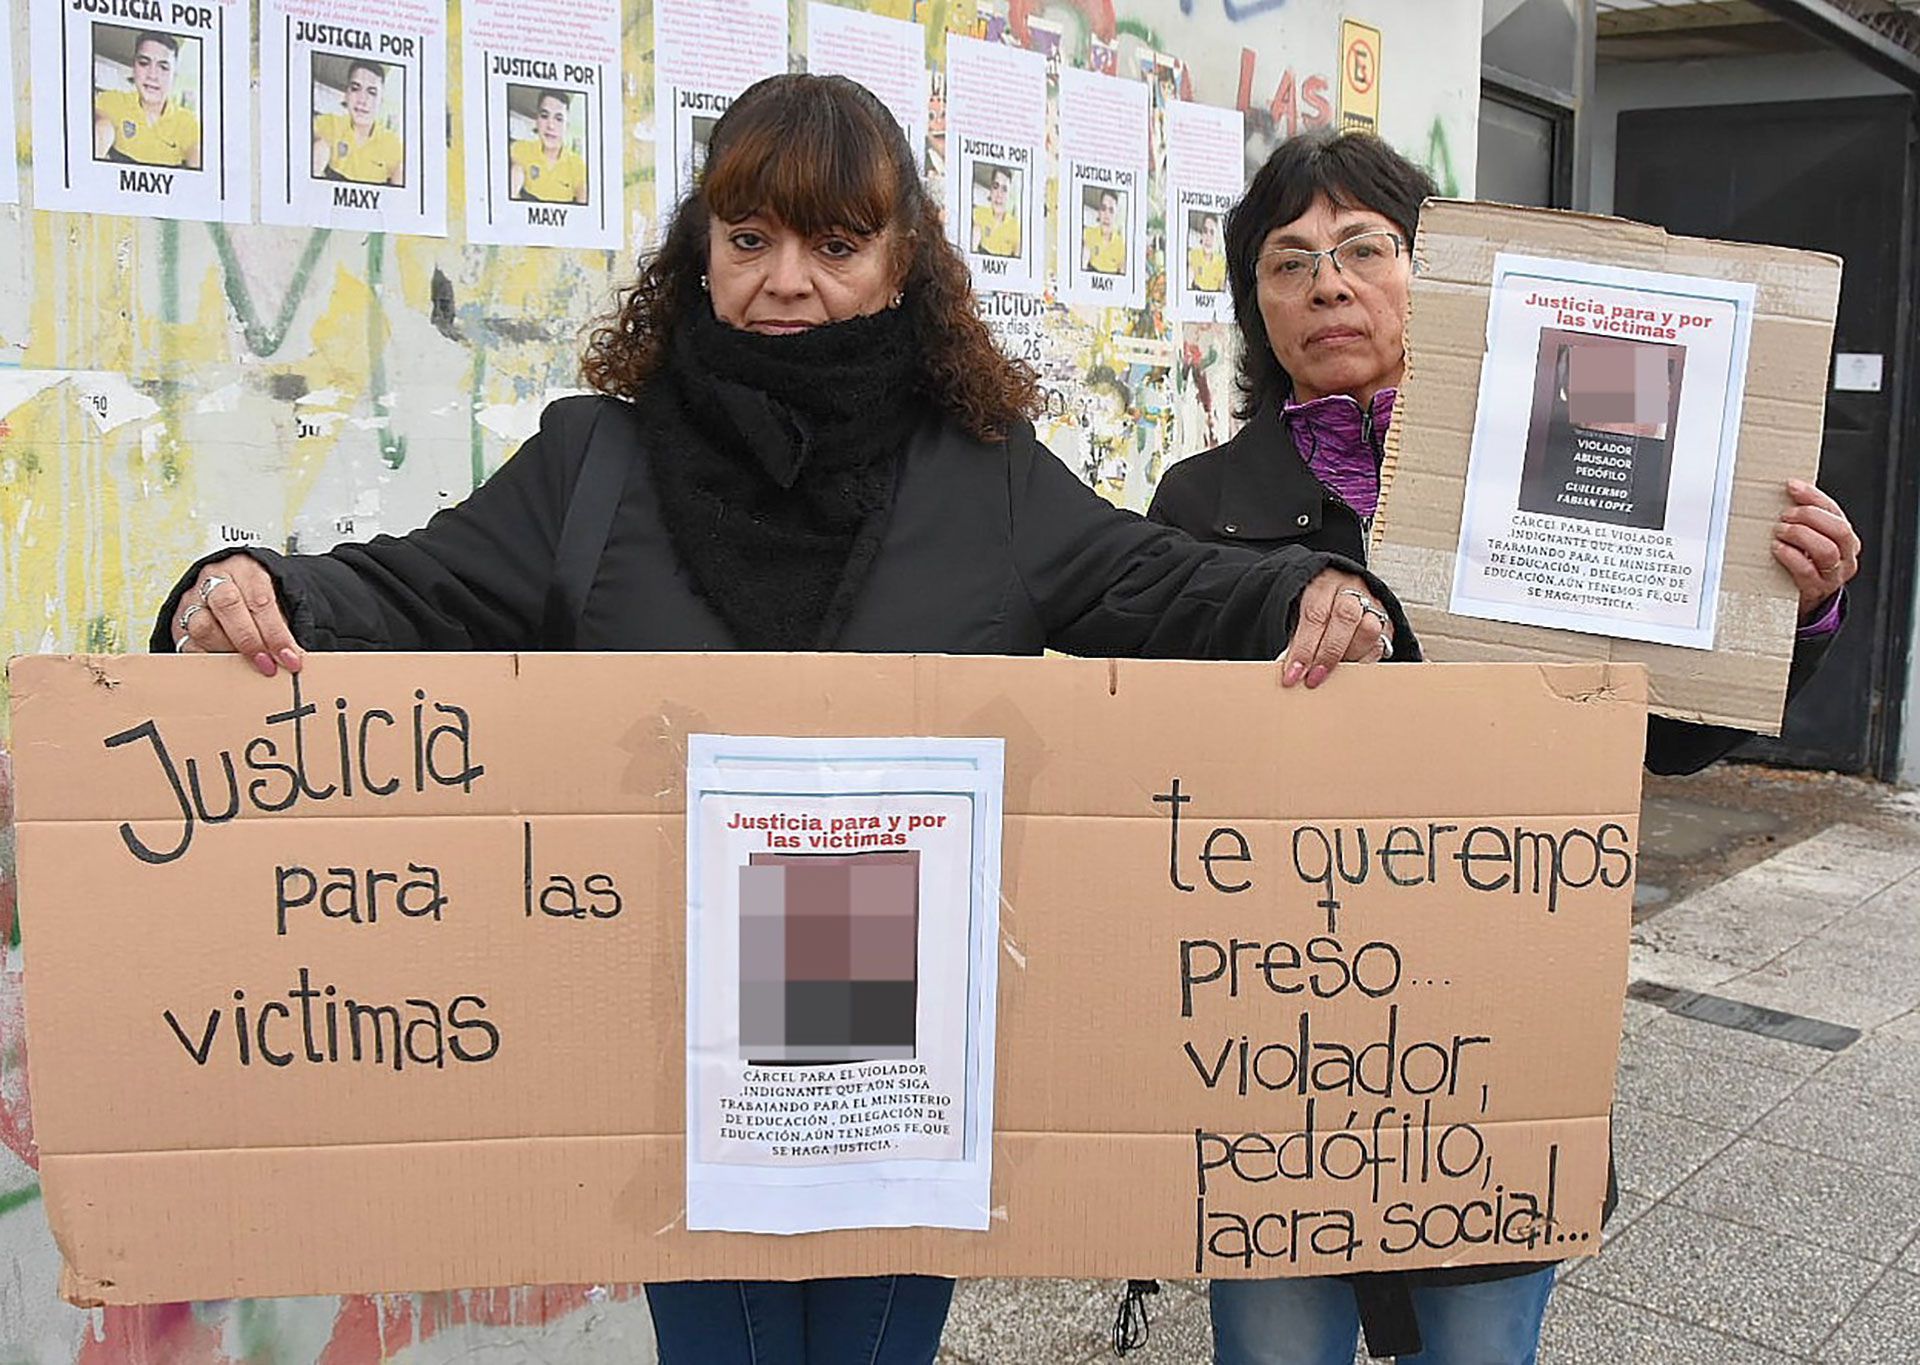 JUSTICIA POR
MAXY
JUSTICIA POR
MAXY
JUSTICIA POR
MAXY
JUSTICIA
JUSTICIA POR
MAXY
JUSTICIA POR
MAXY
JUSTICIA POR
MAXY
LAS
E
28
Justicia para y por
las victimas
VIOLADOR
ABUSADOR
PEDÓFILO
GUILLERMO
FABIAN LOPEZ
CÁRCEL PARA EL VIOLADOR
.INDIGNANTE QUE AÚN SIGA
TRABAJANDO PARA EL MINISTERIO
DE EDUCACIÓN , DELEGACIÓN DE
EDUCACIÓN.AÚN TENEMOS FE,QUE
SE HAGA JUSTICIA .
Justicia
para las
victimas
Justicia para y por
las victimas
CÁRCEL PARA EL VIOLADOR
.INDIGNANTE QUE AÚN SIGA
TRABAJANDO PARA EL MINISTERIO
DE EDUCACIÓN , DELEGACIÓN DE
EDUCACIÓN.AÚN TENEMOS FE,QUE
SE HAGA JUSTICIA .
te queremos
preso...
violador,
pedófilo,
lacra social...